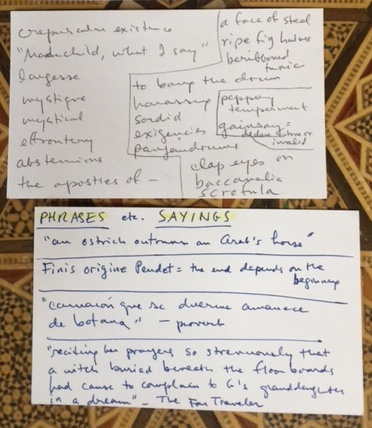 crepuscular existence
"Manchild, what I say"
largesse
mystique
mystical
effrontery
abstemious
the apostles of —
to bang the drum
harassing
sordid
exigencies
panjandrums
a face of steel
ripe fig
beribboned
tunic
peppery
temperament
gainsay =
declare untrue or
invalid
clap eyes on
baccanalia
scrofula
PHRASES etc. SAYINGS
"an ostrich outruns an Arab's horse"
Finis origine Pendet = the end depends on the
beginning
"camarón que se duerme amanece
de botana" — proverb
"reciting her prayers so strenuously that
a witch buried beneath the floor boards
had cause to complain to G's granddaughter
in a dream" — The Fan Traveler